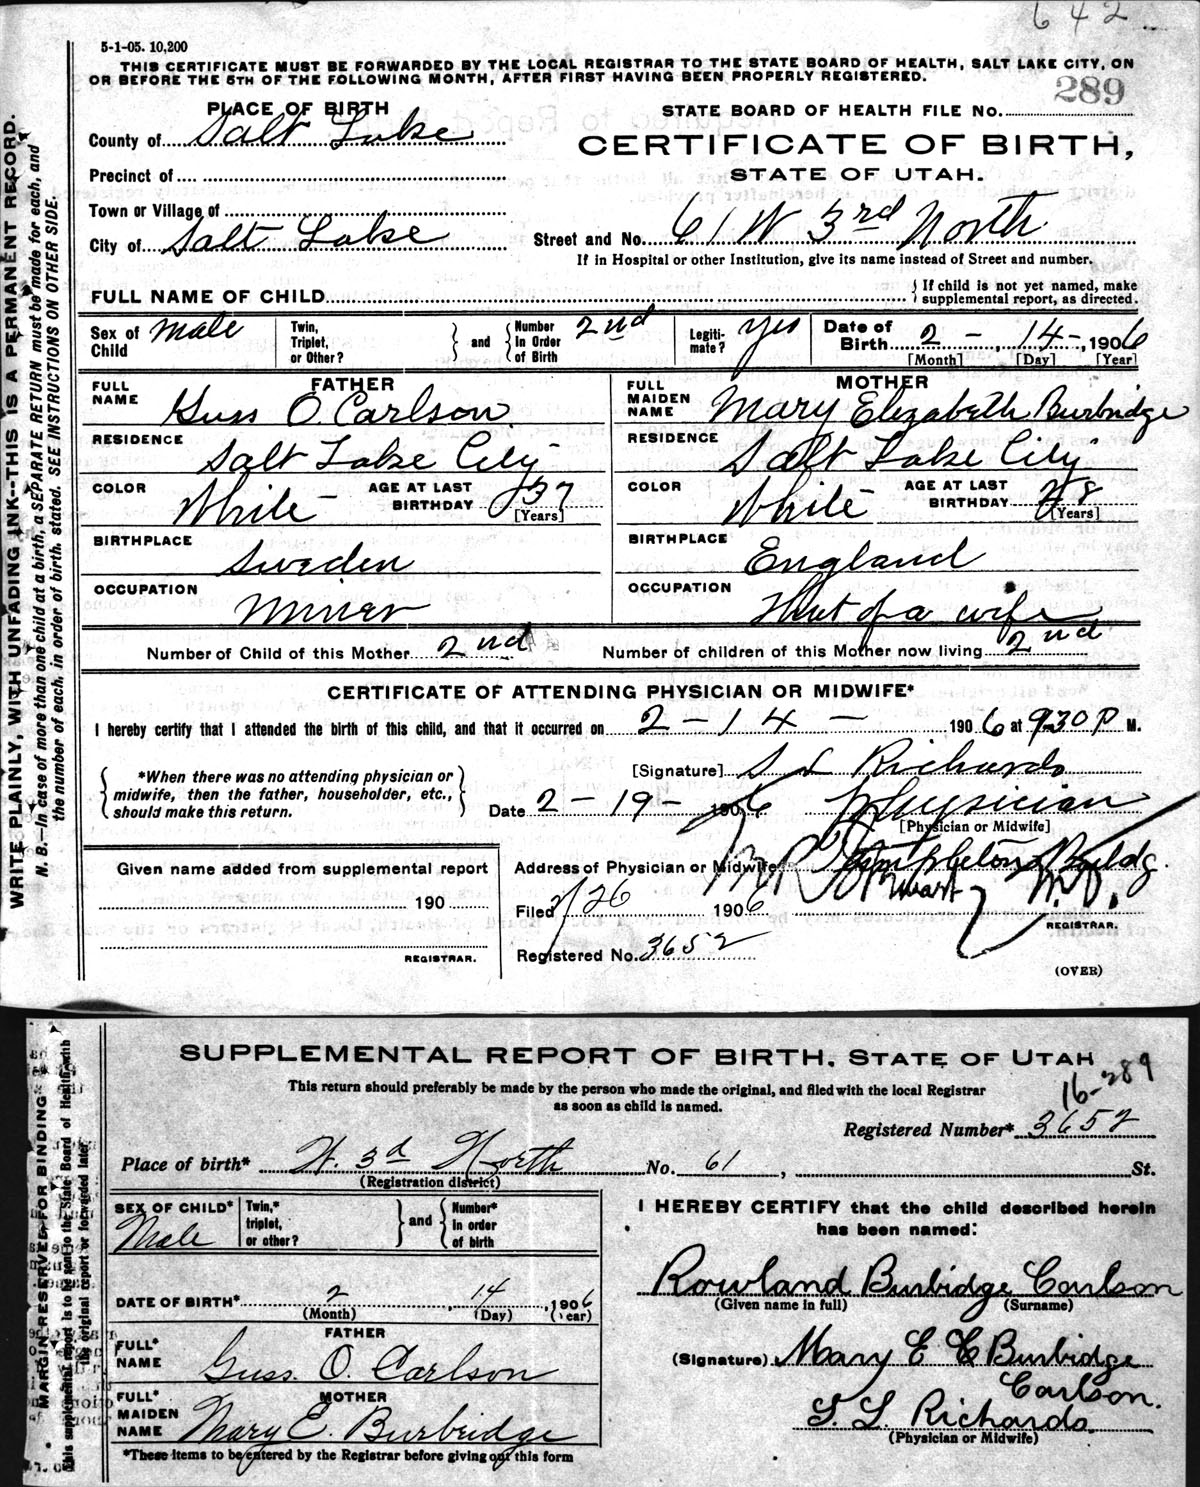 642
5-1-05. 10,200
THIS CERTIFICATE MUST BE FORWARDED BY THE LOCAL REGISTRAR TO THE STATE BOARD OF HEALTH, SALT LAKE CITY, ON
OR BEFORE THE 5TH OF THE FOLLOWING MONTH, AFTER FIRST HAVING BEEN PROPERLY REGISTERED.
289
PLACE OF BIRTH
STATE BOARD OF HEALTH FILE No.
County of Salt Lake
CERTIFICATE OF BIRTH,
Precinct of
STATE OF UTAH.
Town or Village of
City of Salt Lake
Street and No. 61 W 3rd North
If in Hospital or other Institution, give its name instead of Street and number.
FULL NAME OF CHILD
If child is not yet named, make supplemental report, as directed.
Sex of Child male
Twin, Triplet, or Other?
and
Number in Order of Birth 2nd
Legitimate? yes
Date of Birth 2 - 14 -, 1906
[Month] [Day] [Year]
FATHER
FULL NAME Guss O. Carlson
MOTHER
FULL MAIDEN NAME Mary Elizabeth Burbridge
RESIDENCE Salt Lake City
RESIDENCE Salt Lake City
COLOR White
AGE AT LAST BIRTHDAY 37 [Years]
COLOR White
AGE AT LAST BIRTHDAY 28 [Years]
BIRTHPLACE Sweden
BIRTHPLACE England
OCCUPATION Miner
OCCUPATION of a wife
Number of Child of this Mother 2nd
Number of children of this Mother now living 2nd
CERTIFICATE OF ATTENDING PHYSICIAN OR MIDWIFE*
I hereby certify that I attended the birth of this child, and that it occurred on 2 - 14 - 1906 at 9-30 P M.
*When there was no attending physician or midwife, then the father, householder, etc., should make this return.
[Signature] S L Richards
Date 2 - 19 - 1906 Physician
[Physician or Midwife]
Address of Physician or Midwife Templeton Buildg.
Given name added from supplemental report
190
REGISTRAR.
Filed 2/26 1906
M.D.
REGISTRAR.
Registered No. 3652
(OVER)
WRITE PLAINLY, WITH UNFADING INK--THIS IS A PERMANENT RECORD.
N. B.--In case of more than one child at a birth, a SEPARATE RETURN must be made for each, and
the number of each, in order of birth, stated. SEE INSTRUCTIONS ON OTHER SIDE.
SUPPLEMENTAL REPORT OF BIRTH, STATE OF UTAH
This return should preferably be made by the person who made the original, and filed with the local Registrar
as soon as child is named.
16-289
Registered Number* 3652
Place of birth* W. 3d North No. 61, St.
(Registration district)
SEX OF CHILD* Male
Twin,* triplet, or other?
and
Number* in order of birth
I HEREBY CERTIFY that the child described herein
has been named:
DATE OF BIRTH* 2, 14, 1906
(Month) (Day) (Year)
Rowland Burbidge Carlson
(Given name in full) (Surname)
FATHER
FULL* NAME Guss O. Carlson
(Signature) Mary E C Burbidge
Carlson.
MOTHER
FULL* MAIDEN NAME Mary E. Burbridge
S. L. Richards
(Physician or Midwife)
*These items to be entered by the Registrar before giving out this form
MARGIN RESERVED FOR BINDING
This supplemental report is to be sent to the State Board of Health with
the original report or forwarded later.